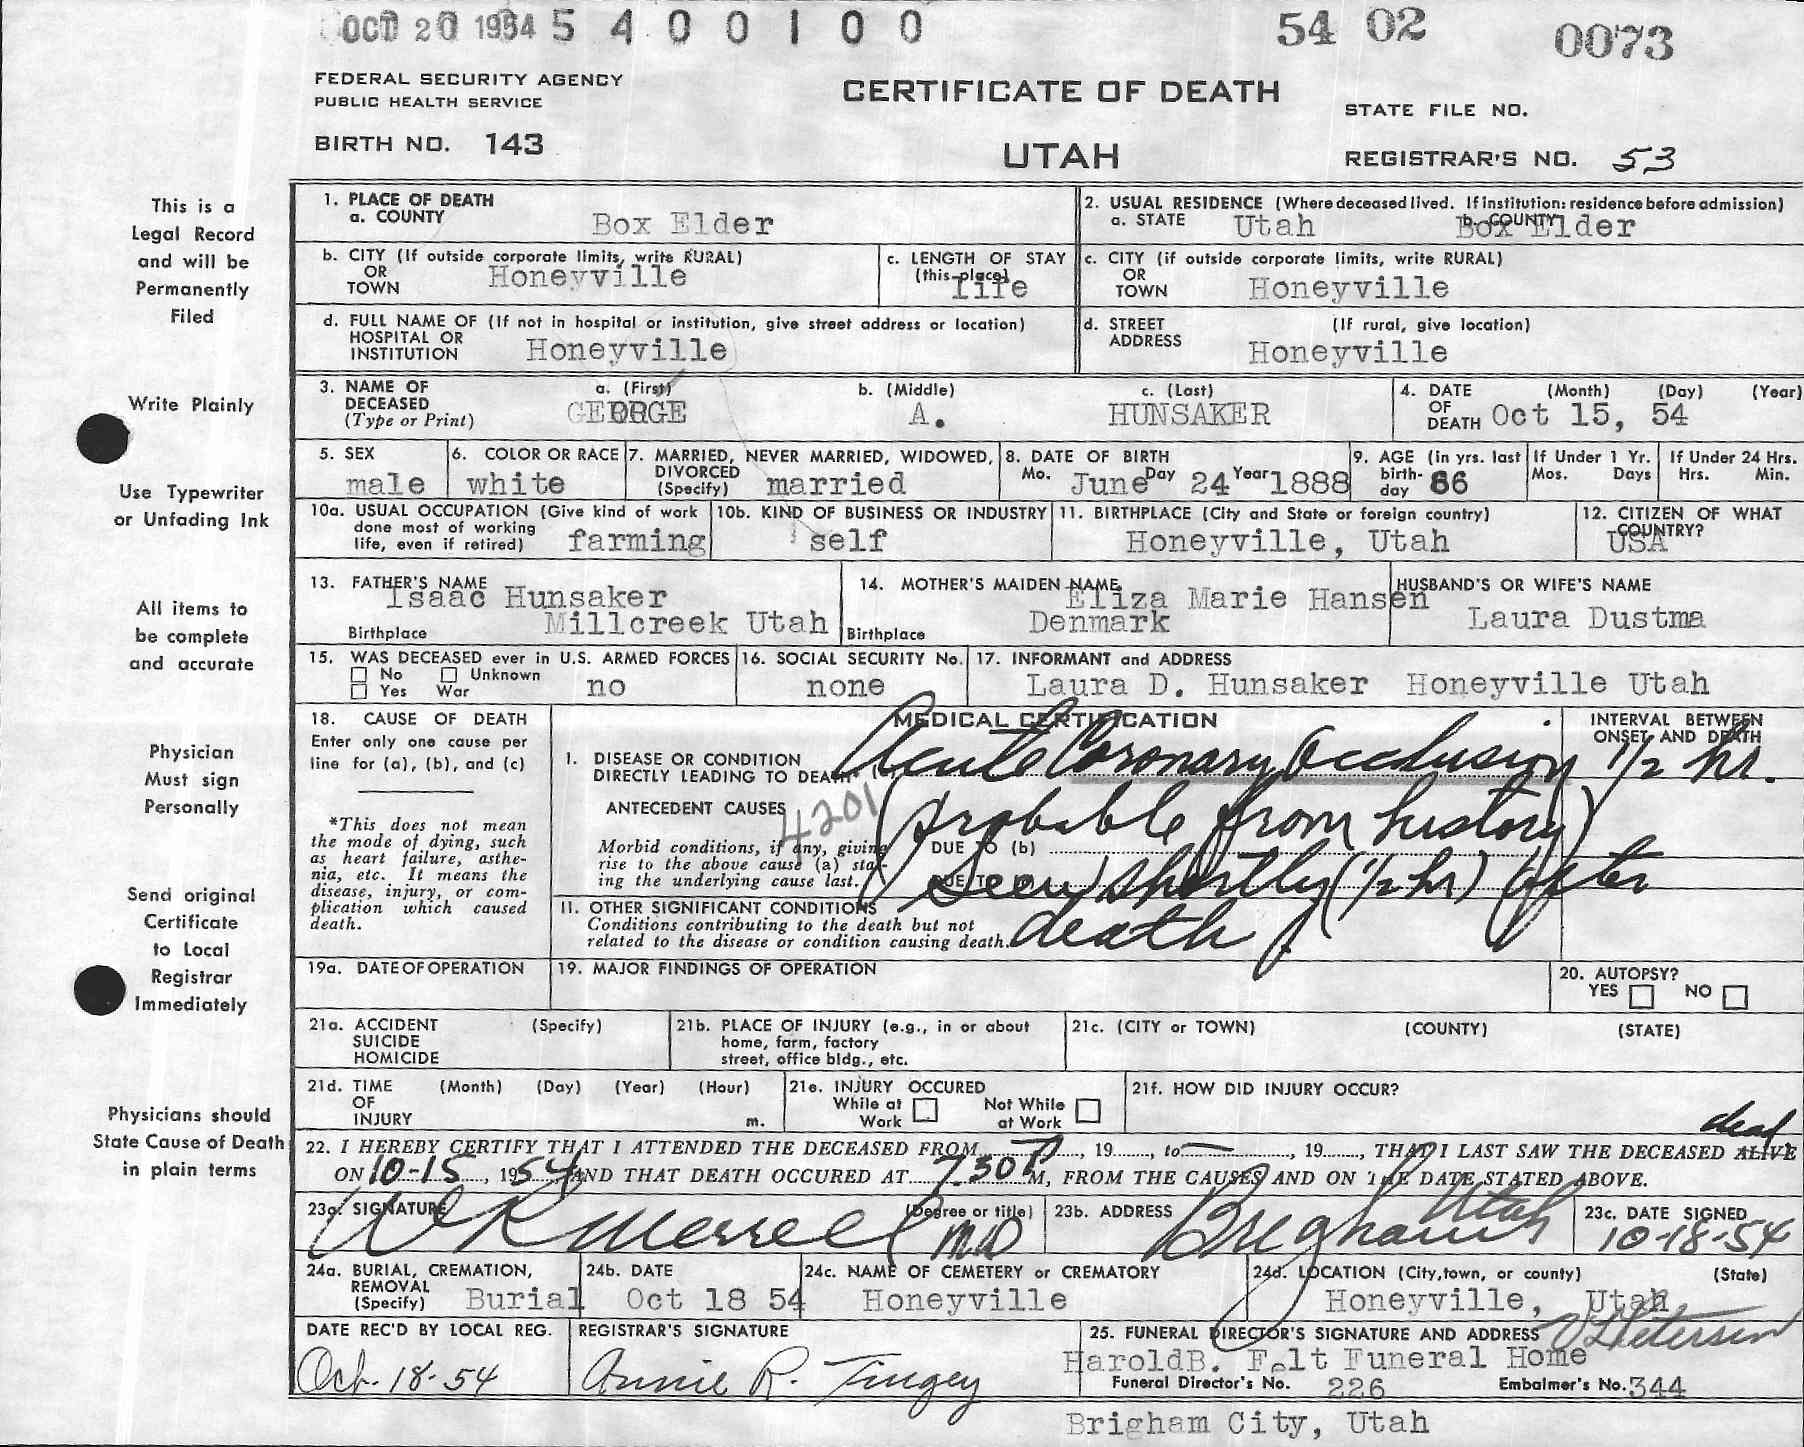 OCT 20 1954 5 4 0 0 1 0 0
54 02 0073
FEDERAL SECURITY AGENCY
PUBLIC HEALTH SERVICE
CERTIFICATE OF DEATH
STATE FILE NO.
BIRTH NO. 143
UTAH
REGISTRAR'S NO. 53
This is a
Legal Record
and will be
Permanently
Filed
Write Plainly
Use Typewriter
or Unfading Ink
All items to
be complete
and accurate
Physician
Must sign
Personally
Send original
Certificate
to Local
Registrar
Immediately
Physicians should
State Cause of Death
in plain terms
1. PLACE OF DEATH
a. COUNTY
Box Elder
2. USUAL RESIDENCE (Where deceased lived. If institution: residence before admission)
a. STATE Utah b. COUNTY Box Elder
b. CITY (If outside corporate limits, write RURAL)
OR
TOWN
Honeyville
c. LENGTH OF STAY
(this place)
life
c. CITY (if outside corporate limits, write RURAL)
OR
TOWN
Honeyville
d. FULL NAME OF (If not in hospital or institution, give street address or location)
HOSPITAL OR
INSTITUTION
Honeyville
d. STREET (If rural, give location)
ADDRESS
Honeyville
3. NAME OF
DECEASED
(Type or Print)
a. (First) b. (Middle) c. (Last)
GEORGE A. HUNSAKER
4. DATE (Month) (Day) (Year)
OF
DEATH Oct 15, 54
5. SEX
male
6. COLOR OR RACE
white
7. MARRIED, NEVER MARRIED, WIDOWED,
DIVORCED
(Specify) married
8. DATE OF BIRTH
Mo. June Day 24 Year 1888
9. AGE (in yrs. last
birth-
day 66
If Under 1 Yr.
Mos. Days
If Under 24 Hrs.
Hrs. Min.
10a. USUAL OCCUPATION (Give kind of work
done most of working
life, even if retired) farming
10b. KIND OF BUSINESS OR INDUSTRY
self
11. BIRTHPLACE (City and State or foreign country)
Honeyville, Utah
12. CITIZEN OF WHAT
COUNTRY?
USA
13. FATHER'S NAME
Isaac Hunsaker
Birthplace Millcreek Utah
14. MOTHER'S MAIDEN NAME
Eliza Marie Hansen
Birthplace Denmark
HUSBAND'S OR WIFE'S NAME
Laura Dustma
15. WAS DECEASED ever in U.S. ARMED FORCES
No Unknown
Yes War no
16. SOCIAL SECURITY No.
none
17. INFORMANT and ADDRESS
Laura D. Hunsaker Honeyville Utah
18. CAUSE OF DEATH
Enter only one cause per
line for (a), (b), and (c)
*This does not mean
the mode of dying, such
as heart failure, asthe-
nia, etc. It means the
disease, injury, or com-
plication which caused
death.
MEDICAL CERTIFICATION
INTERVAL BETWEEN
ONSET AND DEATH
I. DISEASE OR CONDITION
DIRECTLY LEADING TO DEATH* Acute Coronary Occlusion 1/2 hr.
ANTECEDENT CAUSES
4201
(probable from history)
Morbid conditions, if any, giving
rise to the above cause (a) stat-
ing the underlying cause last.
DUE TO (b)
DUE TO
(Seen shortly (1/2 hr) after
death
II. OTHER SIGNIFICANT CONDITIONS
Conditions contributing to the death but not
related to the disease or condition causing death.
19a. DATE OF OPERATION
19. MAJOR FINDINGS OF OPERATION
20. AUTOPSY?
YES NO
21a. ACCIDENT (Specify)
SUICIDE
HOMICIDE
21b. PLACE OF INJURY (e.g., in or about
home, farm, factory
street, office bldg., etc.
21c. (CITY or TOWN) (COUNTY) (STATE)
21d. TIME (Month) (Day) (Year) (Hour)
OF
INJURY m.
21e. INJURY OCCURED
While at Work Not While at Work
21f. HOW DID INJURY OCCUR?
dead
22. I HEREBY CERTIFY THAT I ATTENDED THE DECEASED FROM , 19 , to , 19 , THAT I LAST SAW THE DECEASED ALIVE
ON 10-15, 1954 AND THAT DEATH OCCURED AT 7.30 P M, FROM THE CAUSES AND ON THE DATE STATED ABOVE.
23a. SIGNATURE (Degree or title)
W R Merrell MD
23b. ADDRESS
Brigham Utah
23c. DATE SIGNED
10-18-54
24a. BURIAL, CREMATION,
REMOVAL
(Specify) Burial
24b. DATE
Oct 18 54
24c. NAME OF CEMETERY or CREMATORY
Honeyville
24d. LOCATION (City, town, or county) (State)
Honeyville, Utah
DATE REC'D BY LOCAL REG.
Oct. 18-54
REGISTRAR'S SIGNATURE
Annie R. Tingey
25. FUNERAL DIRECTOR'S SIGNATURE AND ADDRESS
Petersen
Harold B. Felt Funeral Home
Funeral Director's No. 226 Embalmer's No. 344
Brigham City, Utah